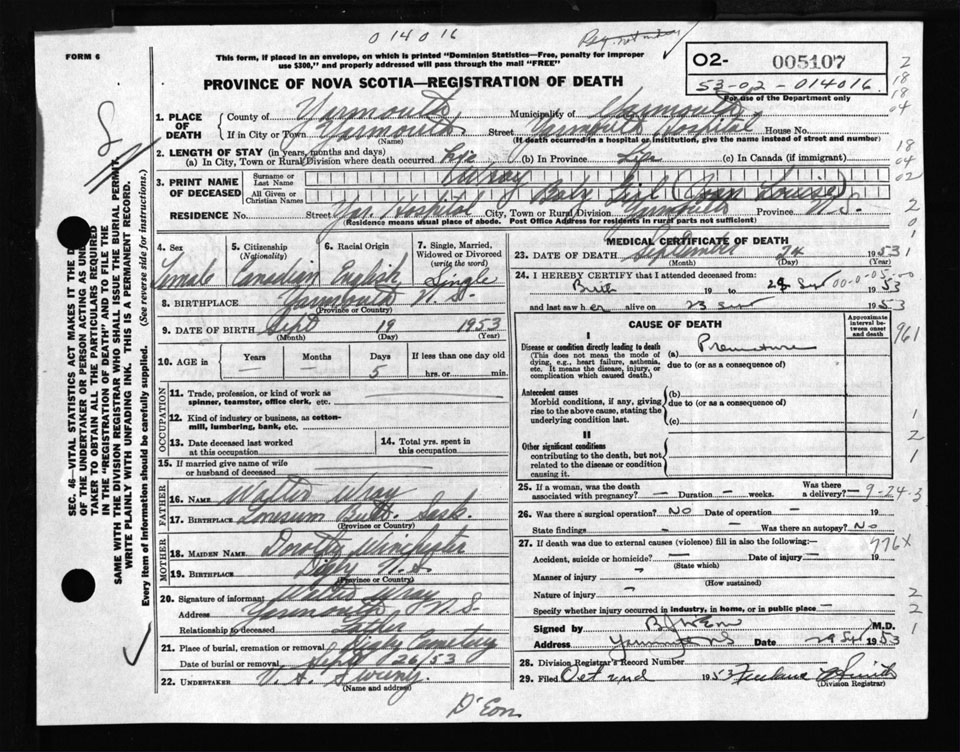 0 14 0 16
FORM 6
This form, if placed in an envelope, on which is printed "Dominion Statistics—Free, penalty for improper
use $300," and properly addressed will pass through the mail "FREE"
PROVINCE OF NOVA SCOTIA—REGISTRATION OF DEATH
O2- 005107
53-02-014016
For use of the Department only
1. PLACE OF DEATH
County of Yarmouth Municipality of Yarmouth
If in City or Town Yarmouth Street Yarmouth Hospital House No.
(Name) (If death occurred in a hospital or institution, give the name instead of street and number)
2. LENGTH OF STAY (in years, months and days)
(a) In City, Town or Rural Division where death occurred Life (b) In Province Life (c) In Canada (if immigrant)
3. PRINT NAME OF DECEASED
Surname or Last Name Wray
All Given or Christian Names Baby Girl (Joan Louise)
RESIDENCE No. Street Yar. Hospital City, Town or Rural Division Yarmouth Province N.S.
Residence means usual place of abode. Post Office Address for residents in rural parts not sufficient)
4. Sex Female
5. Citizenship (Nationality) Canadian
6. Racial Origin English
7. Single, Married, Widowed or Divorced (write the word) Single
8. BIRTHPLACE Yarmouth N.S.
(Province or Country)
9. DATE OF BIRTH Sept 19 1953
(Month) (Day) (Year)
10. AGE in Years — Months — Days 5 If less than one day old hrs. or min.
OCCUPATION
11. Trade, profession, or kind of work as spinner, teamster, office clerk, etc.
12. Kind of industry or business, as cotton-mill, lumbering, bank, etc.
13. Date deceased last worked at this occupation
14. Total yrs. spent in this occupation
15. If married give name of wife or husband of deceased
FATHER
16. NAME Walter Wray
17. BIRTHPLACE Lonesum Butte Sask.
(Province or Country)
MOTHER
18. MAIDEN NAME Dorothy Winchester
19. BIRTHPLACE Digby N.S.
(Province or Country)
20. Signature of informant Walter Wray
Address Yarmouth N.S.
Relationship to deceased Father
21. Place of burial, cremation or removal Digby Cemetery
Date of burial or removal Sept 26/53
22. UNDERTAKER V. A. Sweeny
(Name and address)
D'Eon
MEDICAL CERTIFICATE OF DEATH
23. DATE OF DEATH September 24 1953
(Month) (Day) (Year)
24. I HEREBY CERTIFY that I attended deceased from:
Birth 19 to 1953
and last saw her alive on 23 1953
CAUSE OF DEATH
Approximate interval between onset and death
I
Disease or condition directly leading to death (a) Premature
(This does not mean the mode of dying, e.g., heart failure, asthenia, etc. It means the disease, injury, or complication which caused death.)
due to (or as a consequence of)
Antecedent causes
Morbid conditions, if any, giving rise to the above cause, stating the underlying condition last.
(b)
due to (or as a consequence of)
(c)
II
Other significant conditions
contributing to the death, but not related to the disease or condition causing it.
25. If a woman, was the death associated with pregnancy? — Duration — weeks. Was there a delivery? — 9-24-3
26. Was there a surgical operation? NO Date of operation — 19
State findings — Was there an autopsy? No
27. If death was due to external causes (violence) fill in also the following:—
Accident, suicide or homicide? — Date of injury — 19
(State which)
776X
Manner of injury —
(How sustained)
Nature of injury —
Specify whether injury occurred in industry, in home, or in public place —
Signed by M.D.
Address Date 1953
28. Division Registrar's Record Number
29. Filed Oct 2nd 1953
(Division Registrar)
SEC. 46—VITAL STATISTICS ACT MAKES IT THE
OF THE UNDERTAKER OR PERSON ACTING AS UNDER
TAKER TO OBTAIN ALL THE PARTICULARS REQUIRED
IN THE "REGISTRATION OF DEATH" AND TO FILE THE
SAME WITH THE DIVISION REGISTRAR WHO SHALL ISSUE THE BURIAL PERMIT.
WRITE PLAINLY WITH UNFADING INK. THIS IS A PERMANENT RECORD.
Every item of Information should be carefully supplied. (See reverse side for instructions.)
2
18
18
04
18
04
02
2
0
1
961
1
2
1
2
2
1